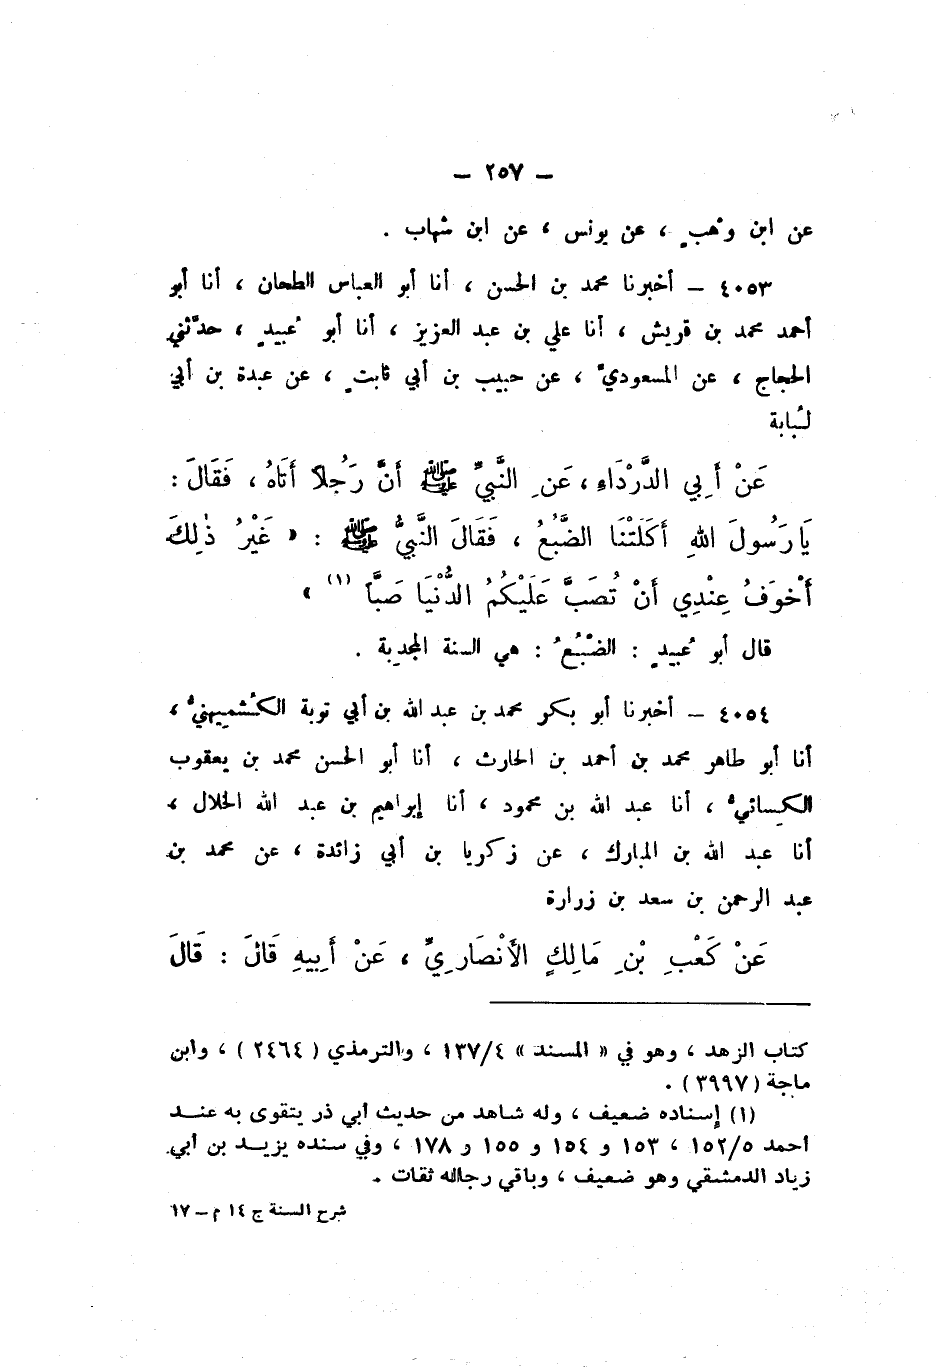 – ٢٥٧ –
عن ابن وهبٍ ، عن يونس ، عن ابن شهاب .
٤٠٥٣ – أخبرنا محمد بن الحسن ، أنا أبو العباس الطحان ، أنا أبو
أحمد محمد بن قريش ، أنا علي بن عبد العزيز ، أنا أبو عُبيدٍ ، حدّثني
الحجاج ، عن المسعوديُّ ، عن حبيب بن أبي ثابتٍ ، عن عبدة بن أبي
لُبابة
عَنْ أَبِي الدَّرْدَاءِ ، عَنِ النَّبِيِّ ﷺ أَنَّ رَجُلاً أَتَاهُ ، فَقَالَ :
يَا رَسُولَ اللهِ أَكَلَتْنَا الضَّبُعُ ، فَقَالَ النَّبِيُّ ﷺ : « غَيْرُ ذٰلِكَ
أَخْوَفُ عِنْدِي أَنْ تُصَبَّ عَلَيْكُمُ الدُّنْيَا صَبًّا (١) »
قال أبو عُبيدٍ : الضبُعُ : هي السنة المجدِبة .
٤٠٥٤ – أخبرنا أبو بكر محمد بن عبد الله بن أبي توبة الكُشميهنيُّ ،
أنا أبو طاهر محمد بن أحمد بن الحارث ، أنا أبو الحسن محمد بن يعقوب
الكسائيُّ ، أنا عبد الله بن محمود ، أنا إبراهيم بن عبد الله الخلال ،
أنا عبد الله بن المبارك ، عن زكريا بن أبي زائدة ، عن محمد بن
عبد الرحمن بن سعد بن زرارة
عَنْ كَعْبِ بْنِ مَالِكٍ الأَنْصَارِيِّ ، عَنْ أَبِيهِ قَالَ : قَالَ
كتاب الزهد ، وهو في « المسند » ١٣٧/٤ ، والترمذي ( ٢٤٦٤ ) ، وابن
ماجة (٣٩٩٧) .
(١) إسناده ضعيف ، وله شاهد من حديث أبي ذر يتقوى به عنــد
أحمد ١٥٢/٥ ، ١٥٣ و ١٥٤ و ١٥٥ و ١٧٨ ، وفي سنده يزيــد بن أبي
زياد الدمشقي وهو ضعيف ، وباقي رجاله ثقات .
شرح السنة ج ١٤ م – ١٧